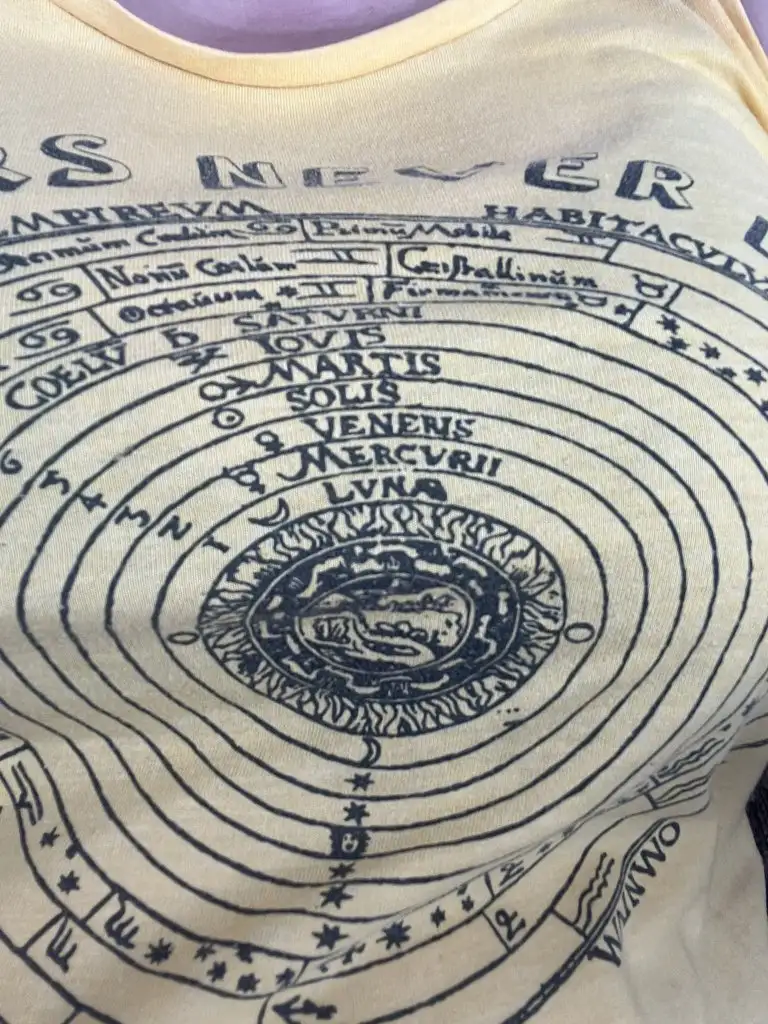 RS NEVER L
MPIREVM HABITACVLV
Coelum ♋ Primu Mobile ♊
♋ Nonu Coelum ♊ Cristallinum ♉
♋ Octauum ♊ Firmamentum ♉
COELV ♄ SATVRNI
♃ IOVIS
♂ MARTIS
☉ SOLIS
♀ VENERIS
☿ MERCVRII
☽ LVNA
6 5 4 3 2 1
OMNIVM